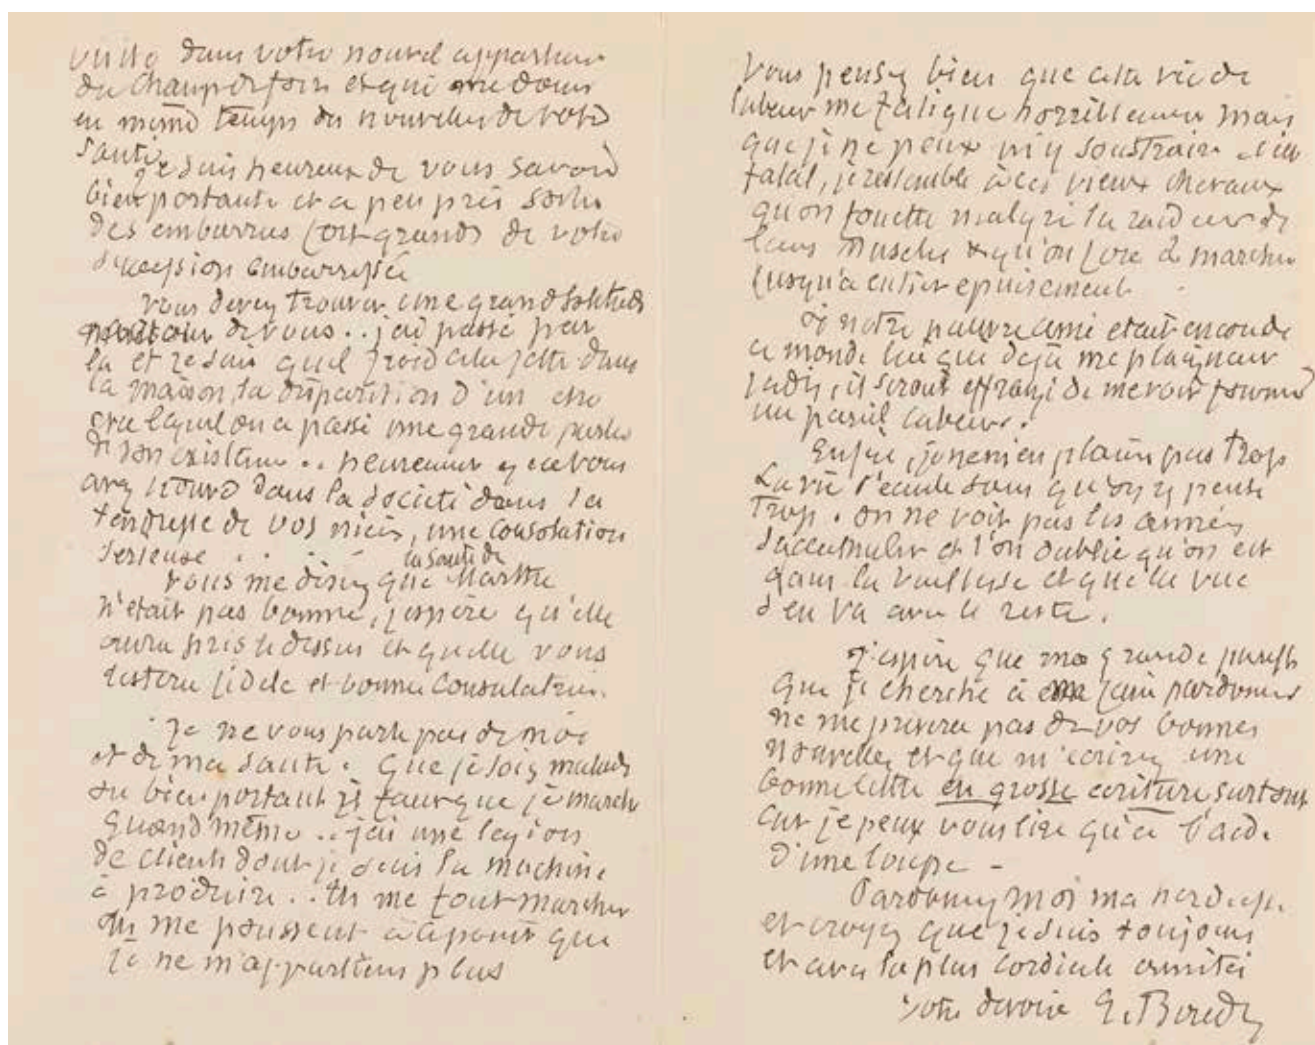 dans votre nouvel appartem
du Champ de foire et qui me donn
en même temps des nouvelles de votre
santé
je suis heureux de vous savoir
bien portante et a peu près sortie
des embarras fort grands de votre
succession embarrassée
Vous devez trouver une grande solitude
autour de vous.. j'ai passé par
la et je sais quel froid cela jette dans
la maison la disparition d'un etre
avec lequel on a passé une grande partie
de son existence .. heureusement que vous
avez trouvé dans la société dans la
tendresse de vos nièces, une consolation
serieuse . . .
la santé de
Vous me disiez que Marthe
n'etait pas bonne, j'espère qu'elle
aura pris le dessus et qu'elle vous
restera fidele et bonne consolatrice.
Je ne vous parle pas de moi
et de ma santé. Que je sois malade
ou bien portant il faut que je marche
quand même .. j'ai une legion
de clients dont je suis la machine
à produire .. Ils me font marcher
Ils me poussent à ce point que
je ne m'appartiens plus
Vous pensez bien que cette vie de
labeur me fatigue horriblement mais
que je ne peux m'y soustraire c'est
fatal, je ressemble à ces vieux chevaux
qu'on fouette malgré la raideur de
leurs muscles & qu'on force à marcher
jusqu'a entier epuisement
Si notre pauvre ami etait encore de
ce monde lui que dejà me plaignait
jadis, il serait effrayé de me voir fournir
un pareil labeur.
Enfin, je ne m'en plains pas trop
La vie s'ecoule sans qu'on y pense
trop. on ne voit pas les années
s'accumuler et l'on oublie qu'on est
dans la vieillesse et que la vue
s'en va avec le reste.
J'espère que ma grande paresse
que je cherche à me faire pardonner
ne me privera pas de vos bonnes
nouvelles et que m'ecrirez une
bonne lettre en grosse ecriture surtout
car je peux vous lire qu'à l'aide
d'une loupe -
Pardonnez moi ma
et croyez que je suis toujours
et avec la plus cordiale amitié
votre devoué E. Boudin